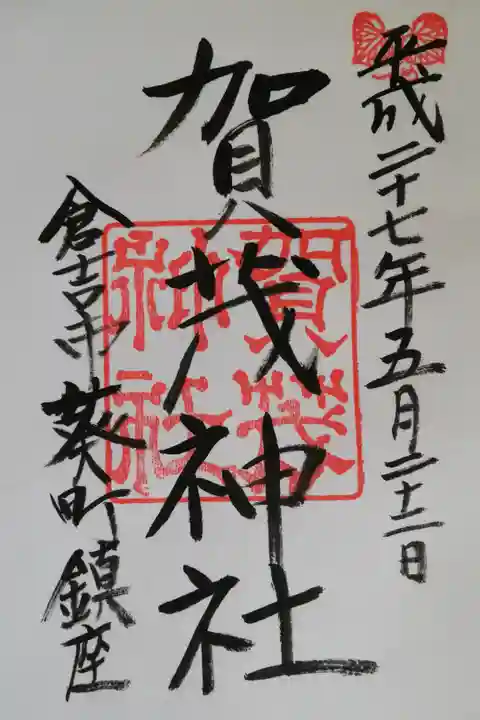 平成二十七年五月二十二日
賀茂神社
賀茂神社
倉吉市葵町鎮座